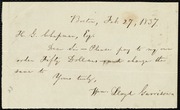 Boston, Feb. 27, 1837.
H. G. Chapman, Esq.
Dear Sir — Please pay to my or-
der Fifty Dollars and charge the
same to
Yours truly,
Wm. Lloyd Garrison.